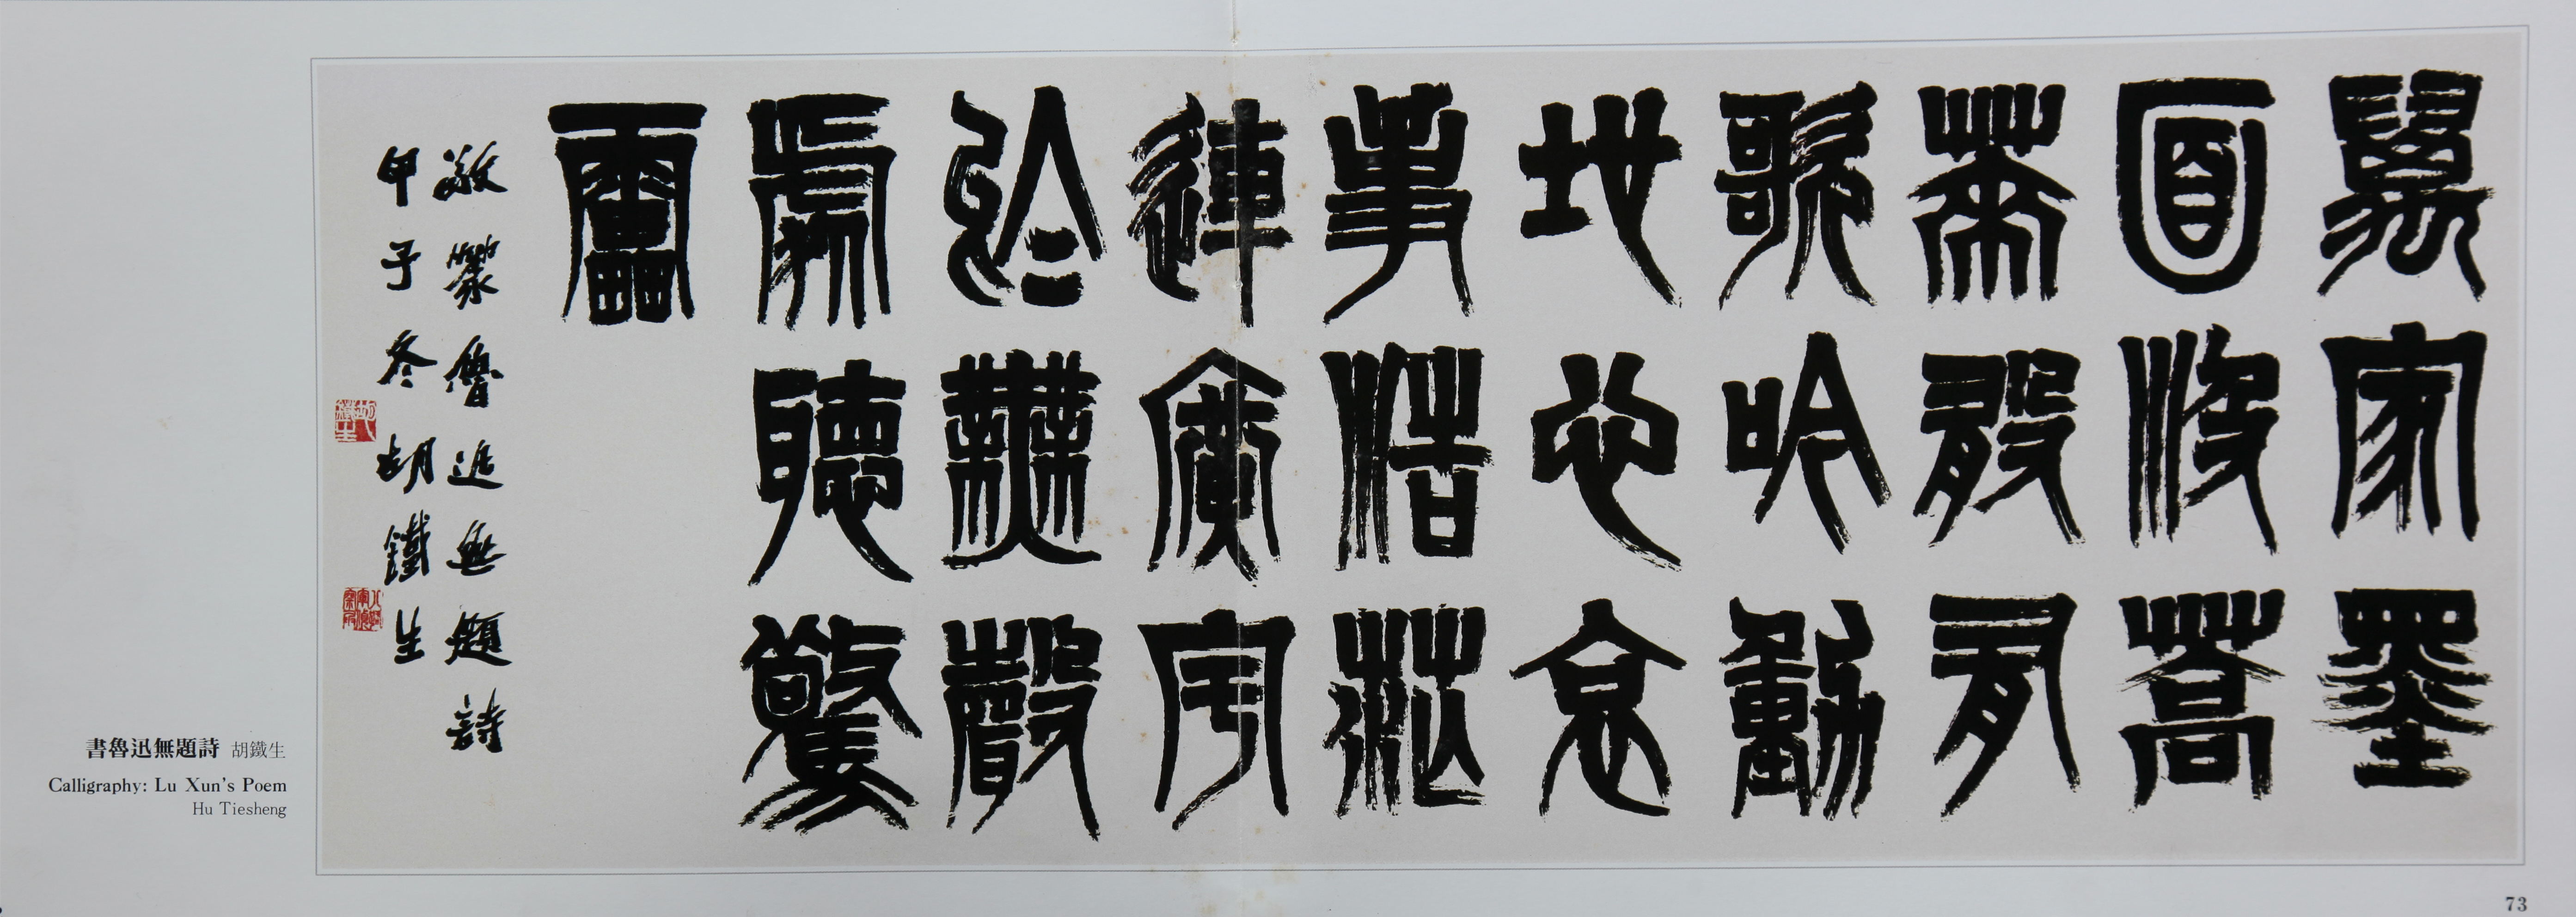 萬家墨
面沒蒿
萊敢有
歌吟動
地心哀
事浩茫
連廣宇
於無聲
處聽驚
雷
敬篆魯迅無題詩
甲子冬胡鐵生
胡鐵生
書魯迅無題詩 胡鐵生
Calligraphy: Lu Xun's Poem
Hu Tiesheng
73